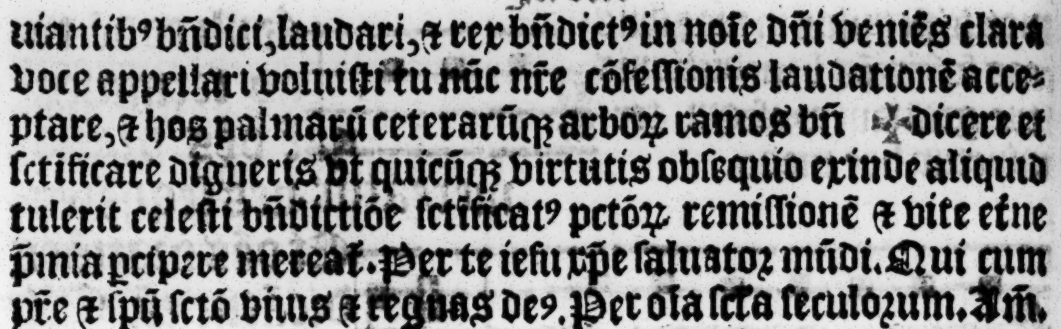 uiantibꝰ bn̄dici, laudari, ⁊ rex bn̄dictꝰ in noīe dn̄i veniēs clara
voce appellari voluisti tu nūc nr̄e cōfessionis laudationē acce⸗
ptare, ⁊ hos palmarū ceterarūqꝫ arboꝝ ramos bn̄ ✠ dicere et
sctificare digneris vt quicūqꝫ virtutis obsequio exinde aliquid
tulerit celesti bn̄dictiōe sctificatꝰ pctōꝝ remissionē ⁊ vite et̄ne
p̄mia ꝑcipere mereat̄. Per te iesu xp̄e saluator mūdi. Qui cum
pr̄e ⁊ spū sctō viuis ⁊ regnas deꝰ. Per oīa sc̄la seculorum. Am̄.